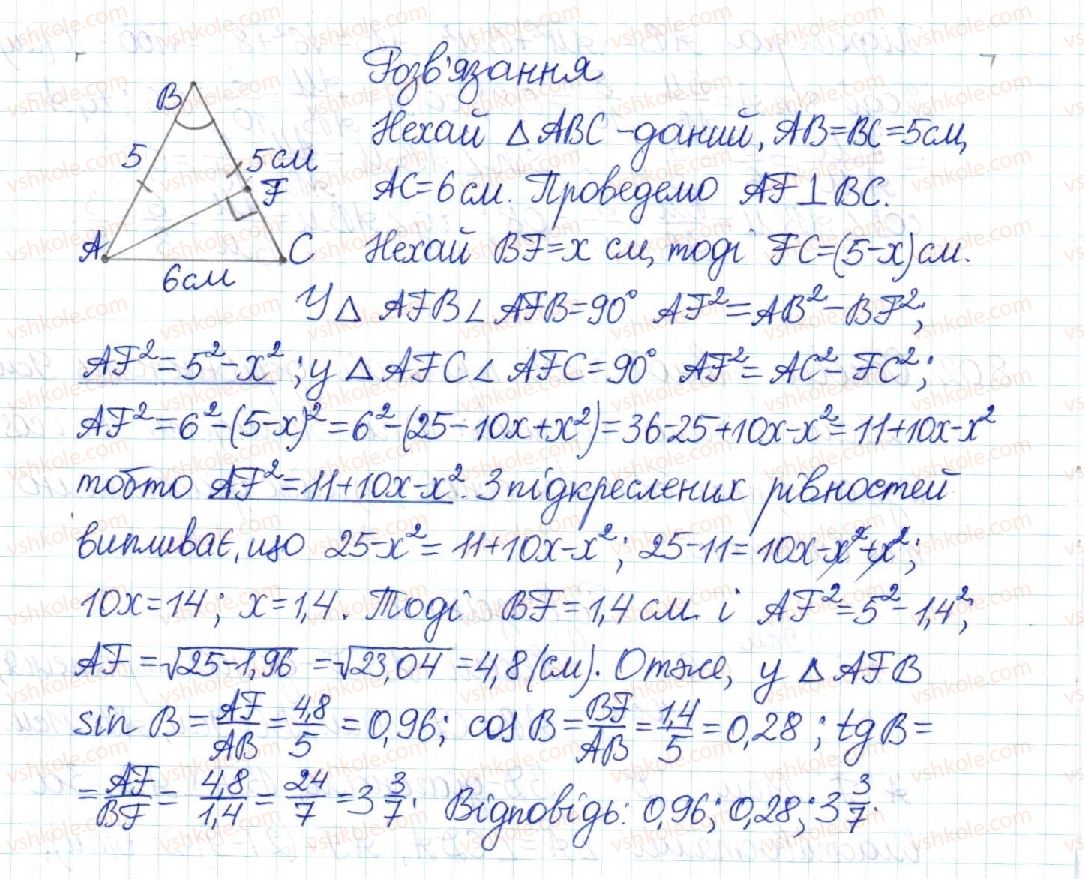 Розв'язання
B
Нехай △ ABC - даний, AB=BC=5см,
5
5см
F
AC=6см. Проведемо AF⊥BC.
A
C
Нехай BF=x см, тоді FC=(5-x)см.
6см
У △ AFB ∠ AFB=90° AF²=AB²-BF²;
AF²=5²-x²; у △ AFC ∠ AFC=90° AF²=AC²-FC²;
AF²=6²-(5-x)²=6²-(25-10x+x²)=36-25+10x-x²=11+10x-x²
тобто AF²=11+10x-x². З підкреслених рівностей
випливає, що 25-x²=11+10x-x²; 25-11=10x-x²+x²;
10x=14; x=1,4. Тоді BF=1,4см і AF²=5²-1,4²;
AF=√25-1,96=√23,04=4,8(см). Отже, у △ AFB
sin B=AF/AB=4,8/5=0,96; cos B=BF/AB=1,4/5=0,28; tg B=
=AF/BF=4,8/1,4=24/7=3 3/7. Відповідь: 0,96; 0,28; 3 3/7.